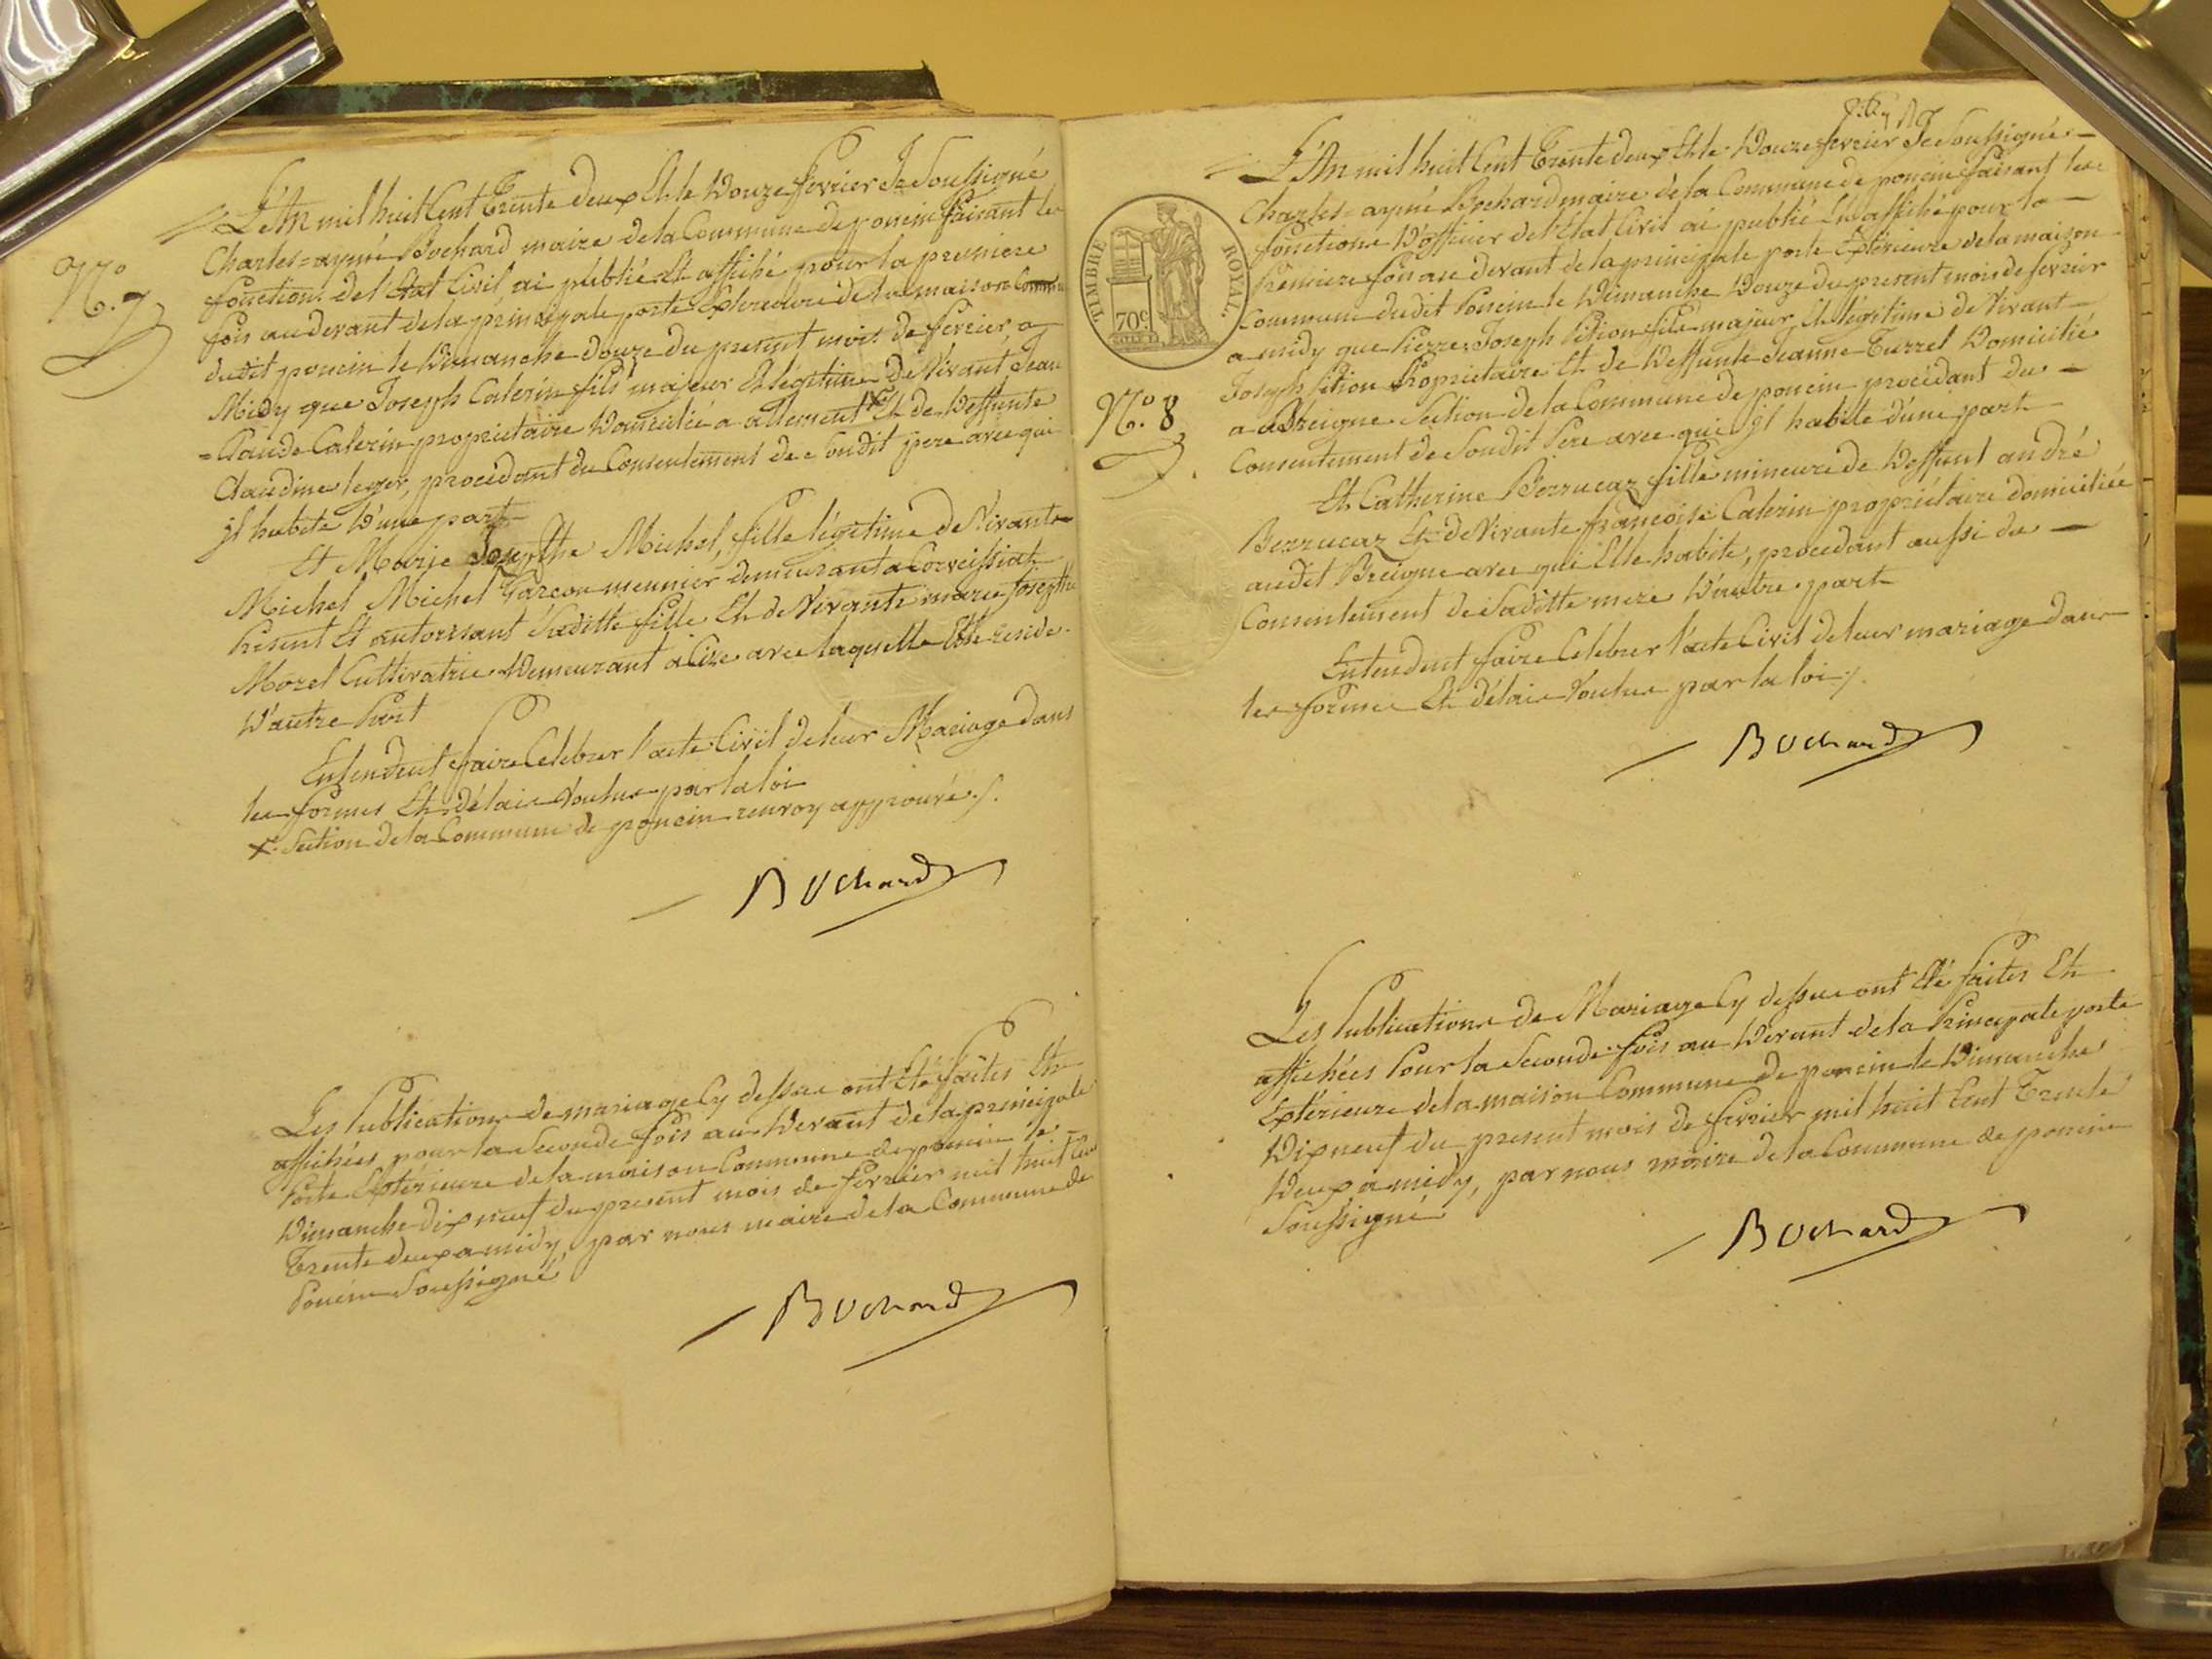 N.º 7
L'An mil huit Cent Trente deux Et le Douze fevrier Je Soussigné
Charles=aymé Bochard maire de la Commune de poncin faisant les
fonctions de l'Etat Civil ai publié Et affiché pour la premiere
fois au devant de la principale porte Exterieure de la maison Commune
dudit poncin le Dimanche douze du present mois de fevrier, a
Midy que Joseph Caterin fils majeur Et légitime De Vivant Jean
=Claude Caterin proprietaire Domicilié a allement X Et de Deffunte
Claudine leger, procedant du Consentement de Soudit pere avec qui
jl habite D'une part
Et Marie Josepthe Michel, fille légitime de Vivants
Michel Michel Garçon meunier demeurant a Corveissiat
Présent Et autorisant Saditte fille Et de Vivante marie Josepthe
Morel Cultivatrice Demeurant a Cize avec laquelle Elle reside
D'autre Part
Entendent faire Celebrer l'acte Civil de leur Mariage dans
les formes Et délais Voulus par la loi
X. Section de la Commune de poncin renvoy approuvé ./.
Bochard
Les Publications de mariage Cy dessus ont Eté faites Et
affichées pour la Seconde fois au Devant de la principale
Porte Exterieure de la maison Commune de poncin le
Dimanche dix neuf du present mois de fevrier mil huit Cent
Trente deux a midy, par nous maire de la Commune de
Poncin Soussigné
Bochard
TIMBRE ROYAL
70c
N.º 8
L'An mil huit Cent Trente deux Et le Douze fevrier Je Soussigné
Charles=aymé Bochard maire de la Commune de poncin faisant les
fonctions D'officier de l'Etat Civil ai publié Et affiché pour la
Premiere fois au devant de la principale porte Exterieure de la maison
Commune dudit Poncin le Dimanche Douze du present mois de fevrier
a midy que Pierre Joseph Pition fils majeur Et légitime de Vivant
Joseph Pition Proprietaire Et de Deffunte Jeanne Turrel Domicilié
a Breigne Section de la Commune de poncin procédant du
Consentement de Soudit Pere avec qui Jl habite d'une part
Et Catherine Berrucaz fille mineure de Deffunt andré
Berrucaz Et de Vivante françoise Caterin propriétaire domiciliée
audit Breigne avec qui Elle habite, procedant aussi du
Consentement de Saditte mere D'autre part
Entendent faire Celebrer l'acte Civil de leur mariage dans
les formes Et délais Voulus par la loi ./.
Bochard
Les Publications de Mariage Cy dessus ont Eté faites Et
affichées Pour la Seconde fois au Devant de la Principale porte
Extérieure de la maison Commune de poncin le Dimanche
Dix neuf du present mois de fevrier mil huit Cent Trente
Deux a midy, par nous maire de la Commune de poncin
Soussigné
Bochard